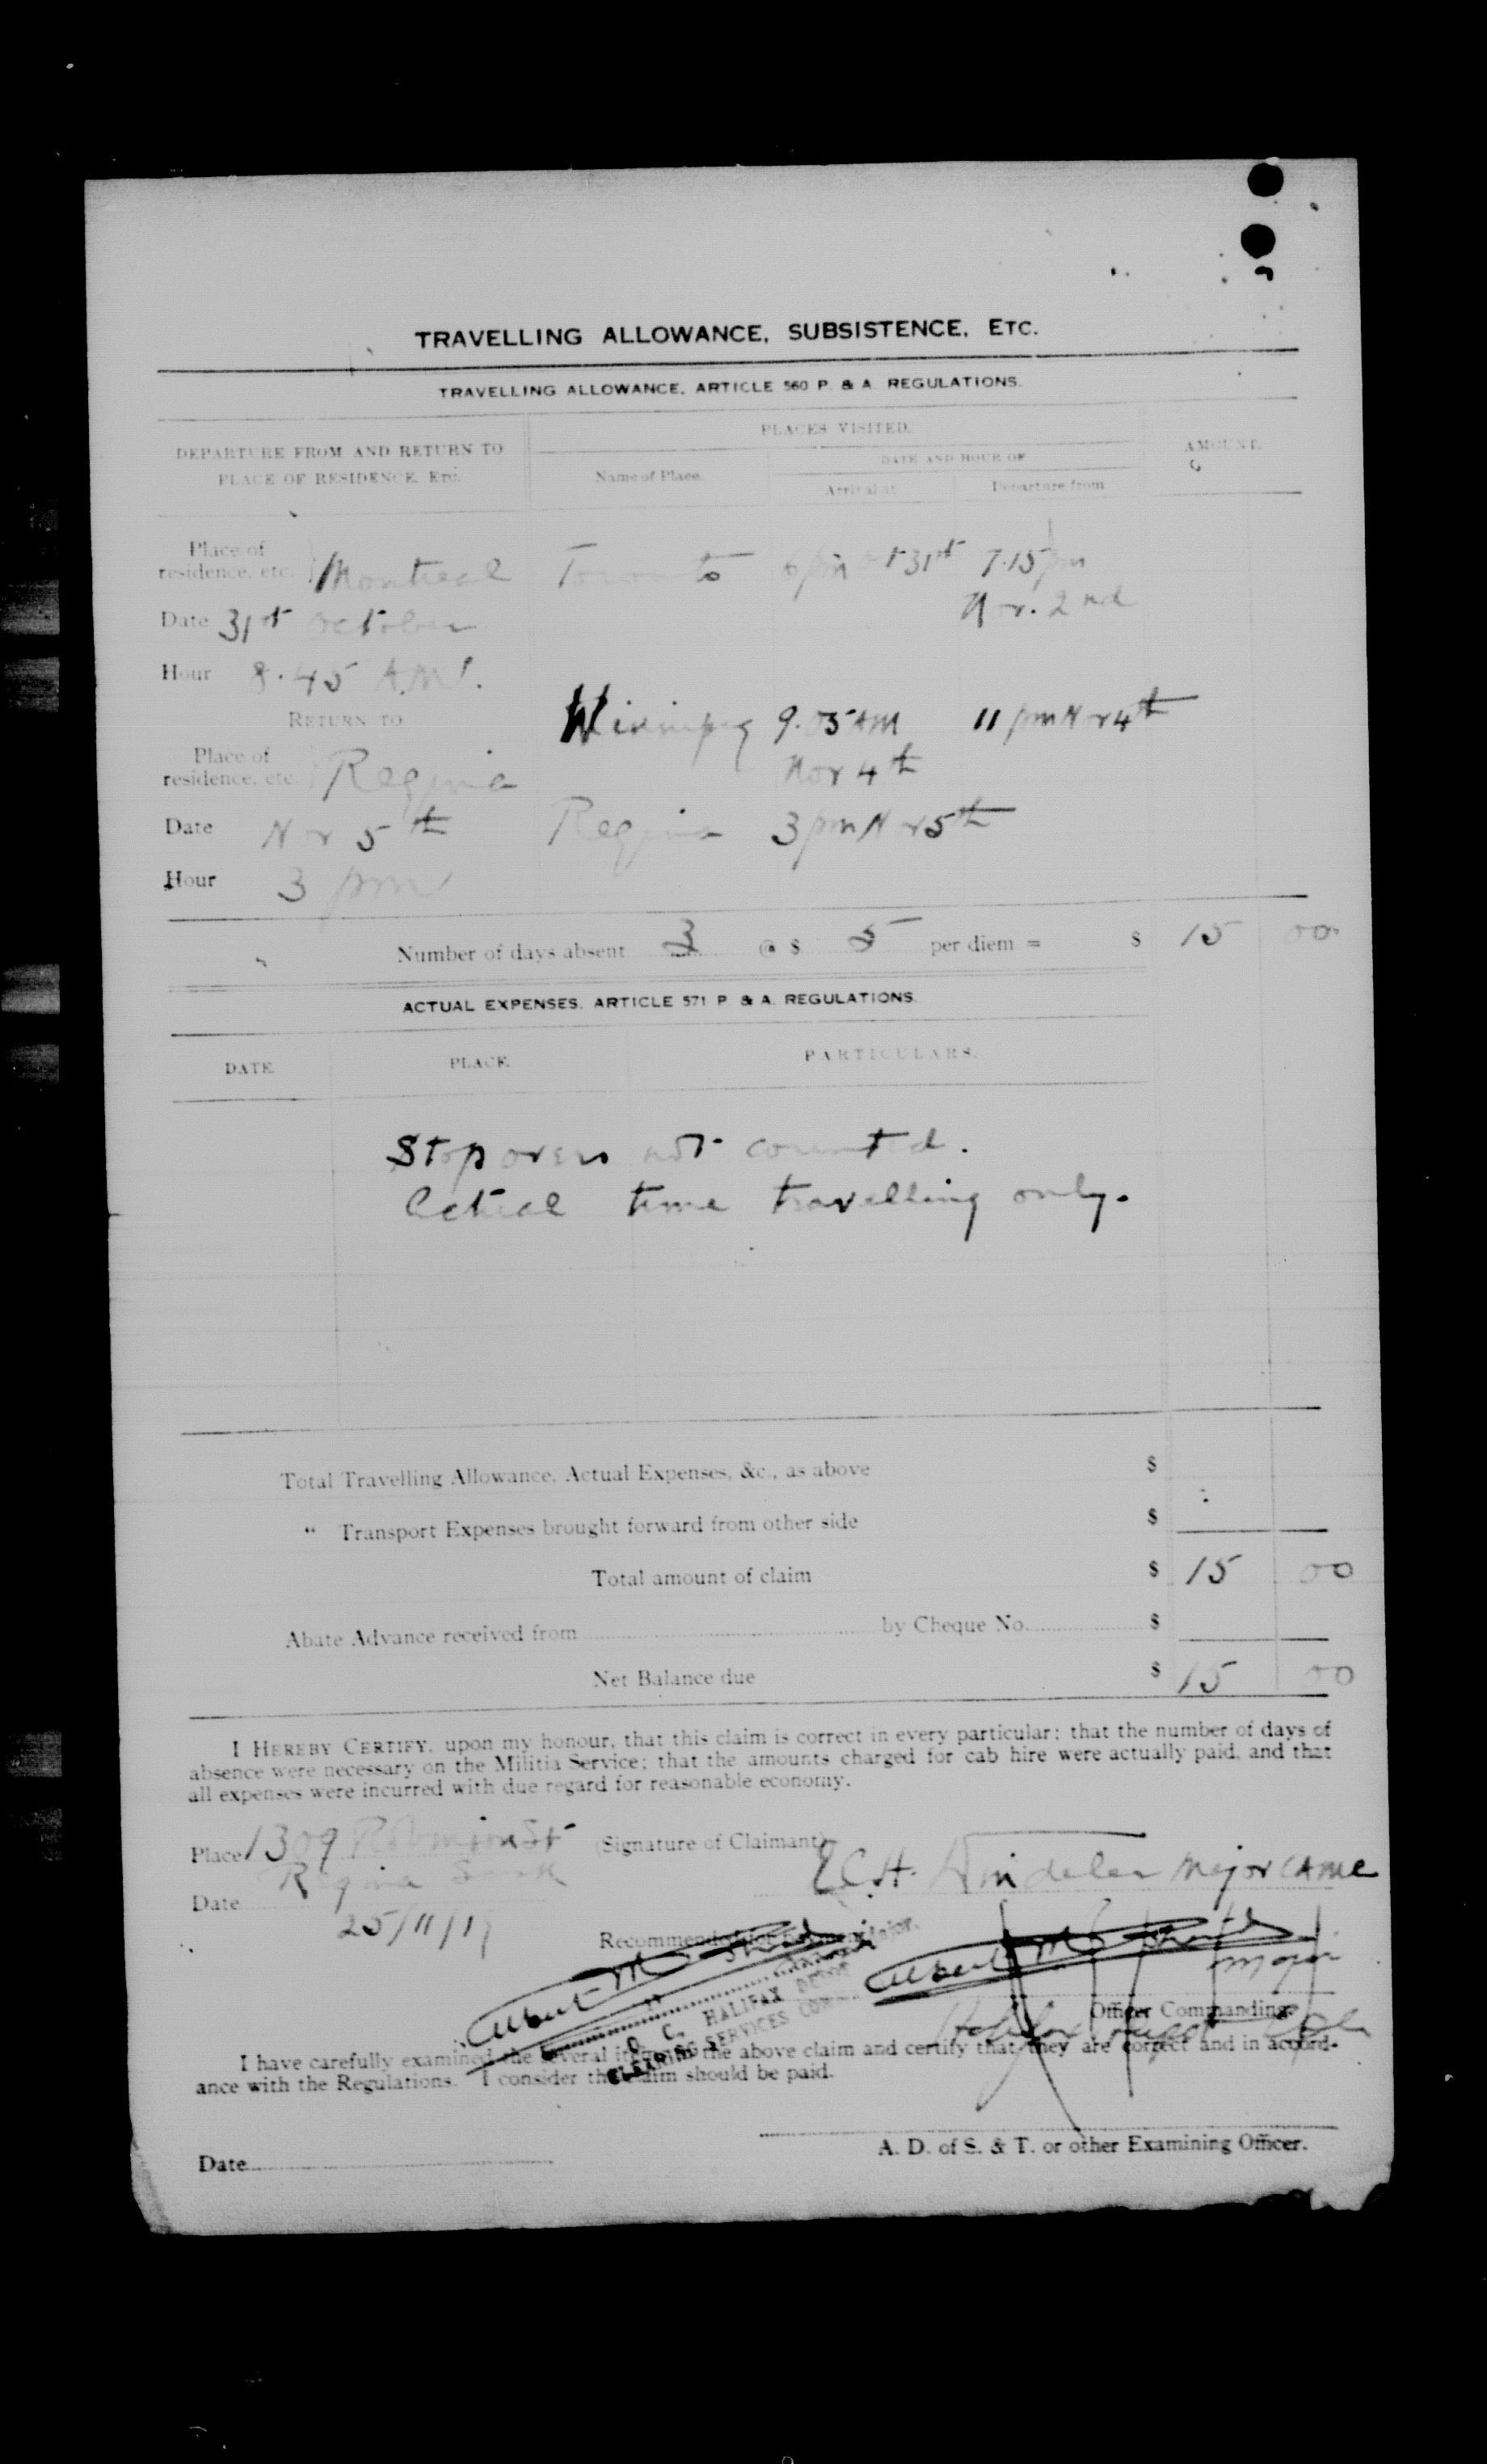 TRAVELLING ALLOWANCE, SUBSISTENCE, ETC.
TRAVELLING ALLOWANCE, ARTICLE 560 P. & A. REGULATIONS.
DEPARTURE FROM AND RETURN TO
PLACE OF RESIDENCE, Etc.
PLACES VISITED.
AMOUNT.
Name of Place.
DATE AND HOUR OF
Arrival at
Departure from
Place of
residence, etc. Montreal Toronto 6 pm Oct 31st 7.15 pm
Nov. 2nd
Date 31st October
Hour 8.45 A.M.
RETURN TO
Winnipeg 9.05 AM 11 pm Nov 4th
Place of
residence, etc. Regina Nov 4th
Date Nov 5th Regina 3 pm Nov 5th
Hour 3 pm
Number of days absent 3 @ $ 5 per diem = $ 15 00
ACTUAL EXPENSES, ARTICLE 571 P. & A. REGULATIONS.
DATE. PLACE. PARTICULARS.
Stop overs not counted.
Actual time travelling only.
Total Travelling Allowance, Actual Expenses, &c., as above $
" Transport Expenses brought forward from other side $
Total amount of claim $ 15 00
Abate Advance received from by Cheque No. $
Net Balance due $ 15 00
I HEREBY CERTIFY, upon my honour, that this claim is correct in every particular; that the number of days of
absence were necessary on the Militia Service; that the amounts charged for cab hire were actually paid, and that
all expenses were incurred with due regard for reasonable economy.
Place 1309 Robinson St (Signature of Claimant)
Regina Sask E.C.H. Windeler Major CAMC
Date 25/11/19
Recommended for payment
Major
Albert
Albert
Major
O. C. HALIFAX DEPOT
CLEARING SERVICES COM
Officer Commanding
Halifax
I have carefully examined the several items in the above claim and certify that they are correct and in accord-
ance with the Regulations. I consider the claim should be paid.
A. D. of S. & T. or other Examining Officer.
Date